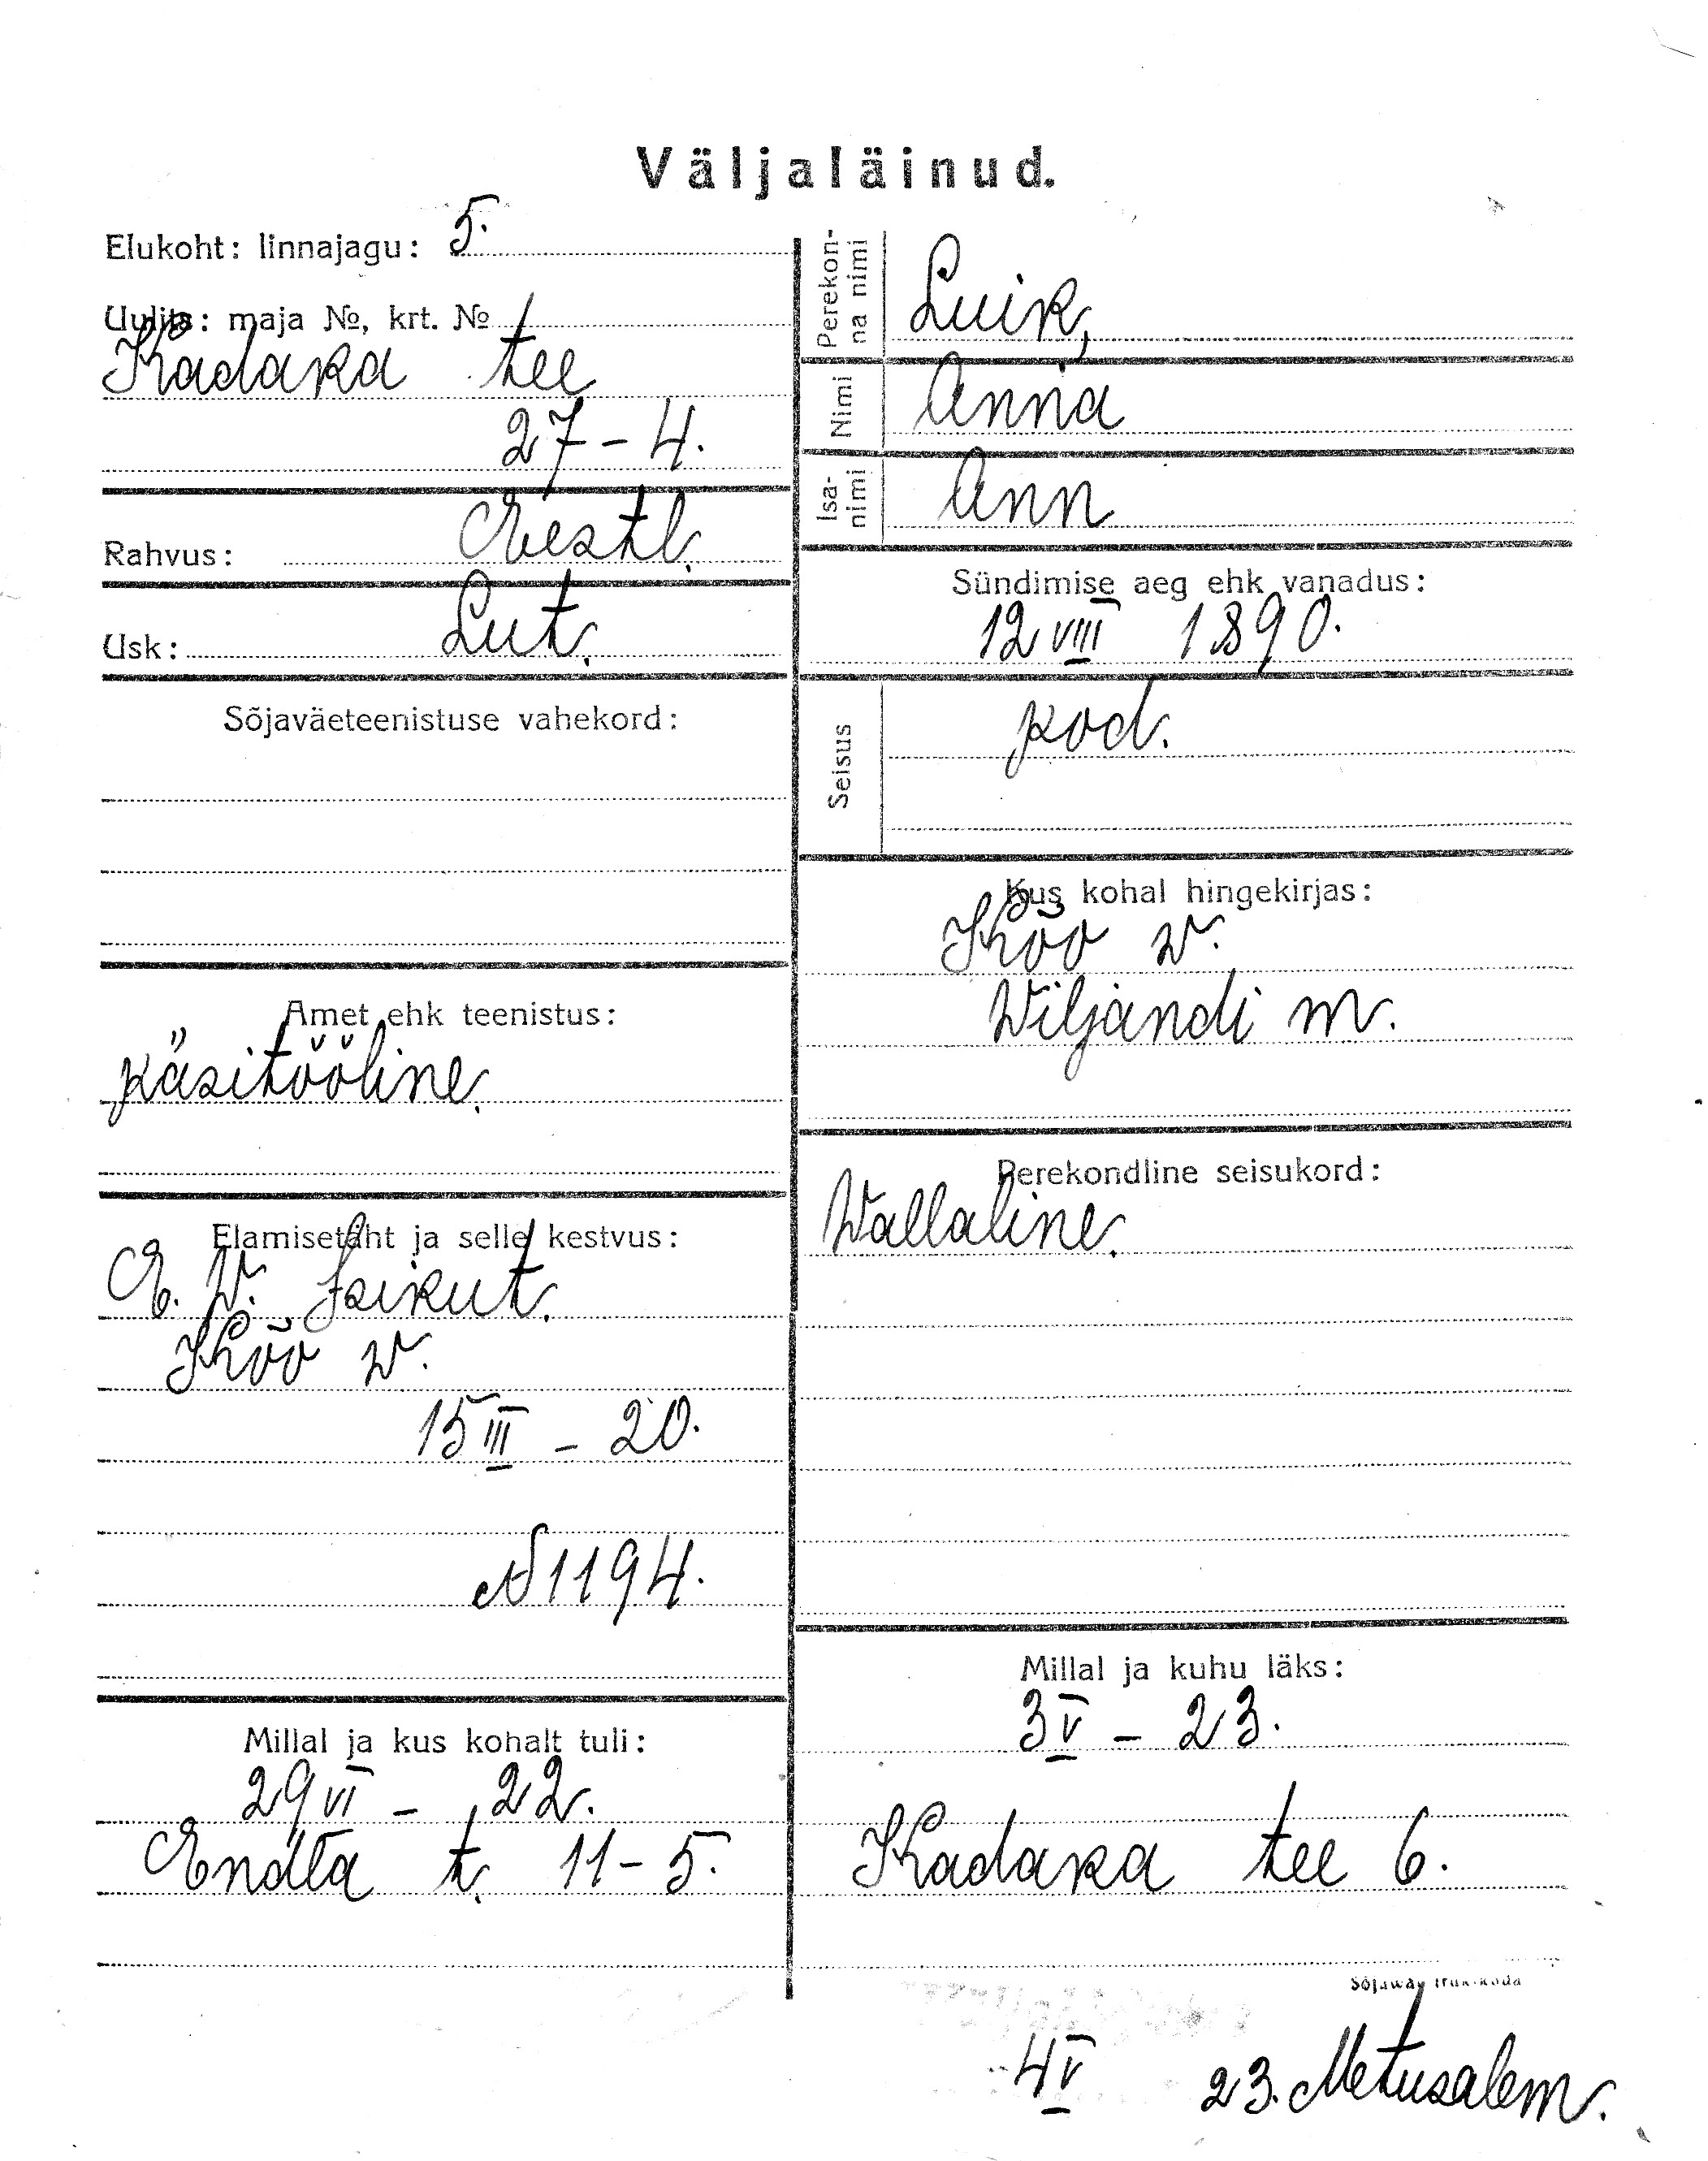 Väljaläinud.
Elukoht: linnajagu: 5.
Uulits: maja №, krt. №
Kadaka tee
27 – 4.
Rahvus: Eestl.
Usk: Lut.
Sõjaväeteenistuse vahekord:
Amet ehk teenistus:
käsitööline.
Elamisetäht ja selle kestvus:
E. W. Isikut.
Kõo w.
15 III – 20.
№ 1194.
Millal ja kus kohalt tuli:
29 VI – 22.
Endla t. 11 – 5.
Perekonna nimi Luik,
Nimi Anna
Isanimi Ann
Sündimise aeg ehk vanadus:
12 VIII 1890.
Seisus kod.
Kus kohal hingekirjas:
Kõo w.
Wiljandi m.
Perekondline seisukord:
Wallaline.
Millal ja kuhu läks:
3 V – 23.
Kadaka tee 6.
Sõjawäe trük-koda
4 V 23. Metusalem.